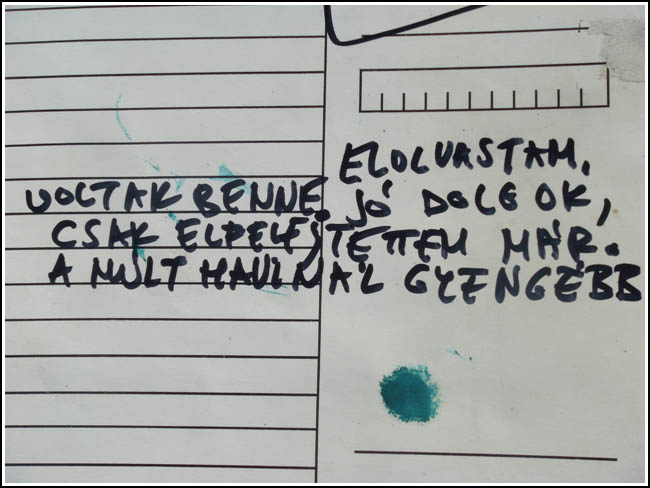 ELOLVASTAM.
VOLTAK BENNE JÓ DOLGOK,
CSAK ELPELEJTETTEM MÁR.
A MÚLT HAVINÁL GYENGÉBB